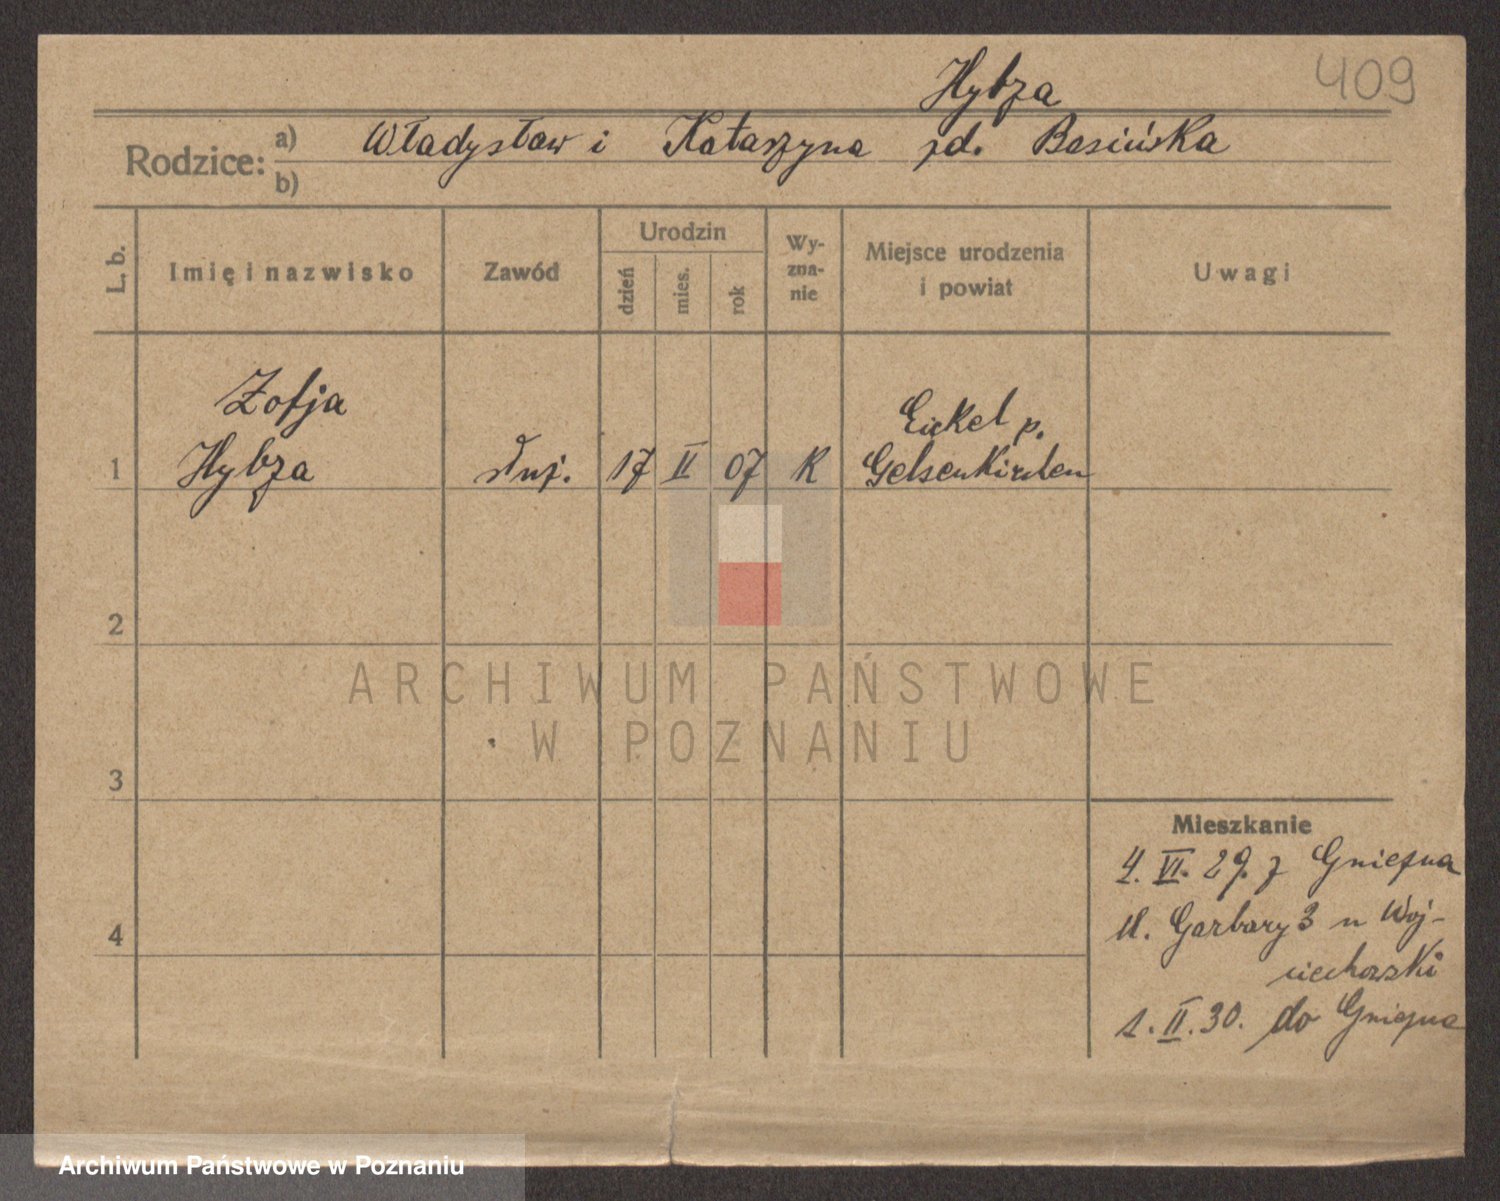 409
Hybza
Rodzice: a) Władysław i Katarzyna zd. Basińska
b)
L. b.
Imię i nazwisko
Zawód
Urodzin
dzień
mies.
rok
Wy-
zna-
nie
Miejsce urodzenia
i powiat
Uwagi
Zofja
Eickel p.
1 Hybza służ. 17 II 07 K Gelsenkirchen
2
3
4
ARCHIWUM PAŃSTWOWE
W POZNANIU
Mieszkanie
4. VI. 29. z Gniezna
ul. Garbary 3 u Woj-
ciechowski
1. II. 30. do Gniezna
Archiwum Państwowe w Poznaniu